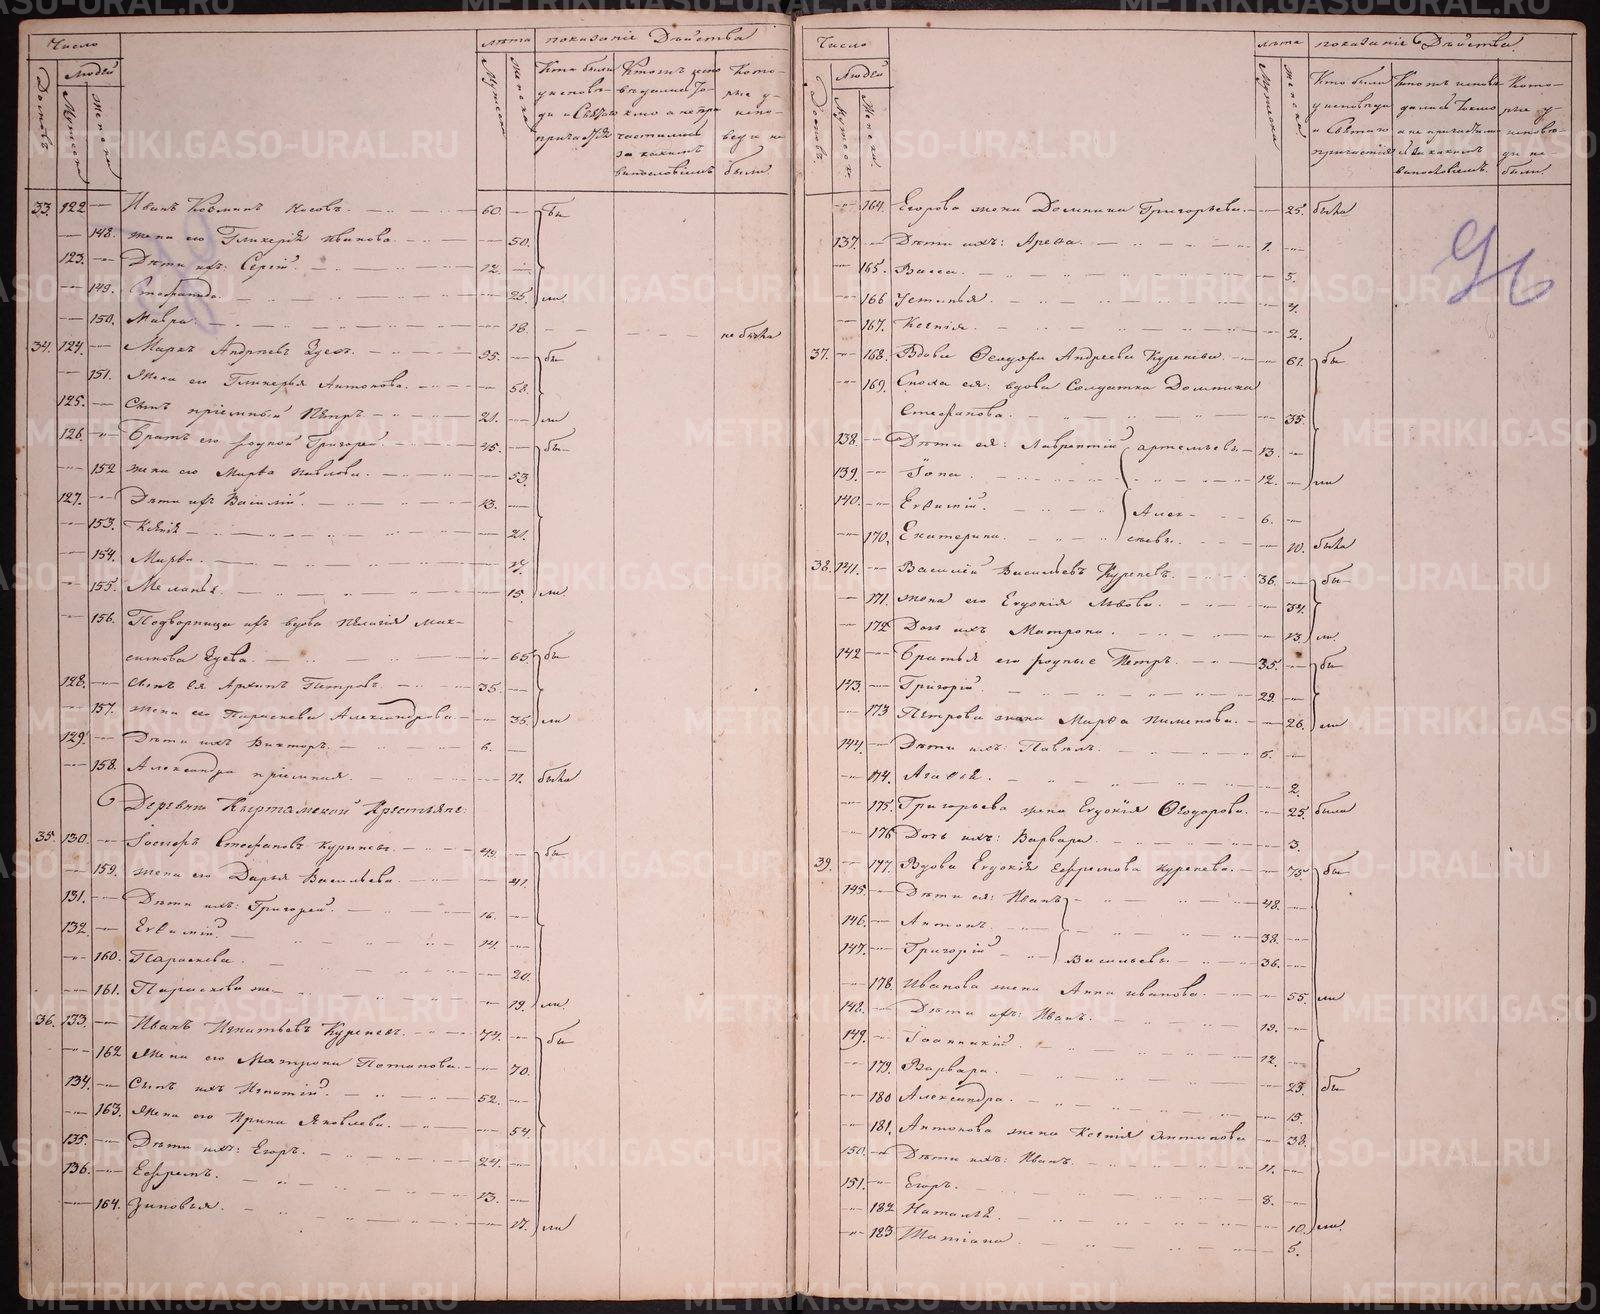 Число
Людей
Домовъ
Мужеска
Женска
лѣта
Мужеска
Женска
показаніе Дѣйства
Кто были
у исповѣ-
ди и Святаго
Которые у
исповѣди не
были
33. 122 — Иванъ Косминъ Носовъ. 60. — бы
— 148. жена его Гликерія Иванова. — 50.
123. — Дѣти ихъ: Сергій. 12. —
— 149. Степанида. — 25. ли
— 150. Мавра. — 18. не была
34. 124. — Маркъ Андреевъ Зуевъ. 55. — бы
— 151. Жена его Гликерья Антонова. — 58.
125. — Сынъ пріемный Петръ. 21. — ли
126. — Братъ его родной Григорей. 45. — бы
— 152 жена его Марѳа Павлова. — 53.
127. — Дѣти ихъ Василій. 13. —
— 153. Ксенія — 21.
— 154. Марѳа. — 17.
— 155. Меланья. — 15. ли.
— 156. Подворница ихъ вдова Пелагія Мак-
симова Зуева. — 65. бы
128. — сынъ ея Архипъ Петровъ. 35. —
— 157. жена его Параскева Александрова. — 35. ли
129. — Дѣти ихъ Викторъ. 6. —
— 158. Александра пріемная. — 11. была
Деревни Кыртамской Крестьяне:
35. 130. — Іосифъ Стефановъ Куреневъ. 43. — бы
— 159. жена его Дарья Васильева. — 41.
131. — Дѣти ихъ: Григорей. 16. —
132. — Евѳимій. 14. —
— 160. Параскева. — 20.
— 161. Параскева же — 19. ли.
36. 133. — Иванъ Игнатьевъ Куреневъ. 74. — бы
— 162 Жена его Матрона Потапова. — 70.
134. — Сынъ ихъ Игнатій. 52. —
— 163. Жена его Ирина Яковлева. — 54.
135. — Дѣти ихъ: Егоръ. 24. —
136. — Ефремъ. 13. —
— 164. Зиновья. — 17. ли
Число
Людей
Домовъ
Мужеск.
Женски
лѣта
Мужеска
Женска
показаніе Дѣйства.
Кто были
у исповѣди
и Святаго
причастія
Кто исповѣ-
дались токмо
а не причастились
и за какимъ
винословіемъ.
Кото-
рые у
исповѣ-
ди не
были.
96
— 164. Егорова жена Домника Григорьева. — 25. была
137. — Дѣти ихъ: Ареѳа. 1. —
— 165. Васса. — 5.
— 166 Устинья. — 4.
— 167. Ксенія. — 2.
37. — 168. Вдова Ѳеодора Андреева Куренева. — 61. бы
— 169. Сноха ея: вдова Солдатка Домника
Стефанова. — 35.
138. — Дѣти ея: Лаврентій Артемьевъ. 13. —
139. — Іона. 12. — ли
140. — Евѳимій. Алек- 6. —
— 170. Екатерина. сѣевъ. — 10. была
38. 141. — Василій Васильевъ Куреневъ. 36. — бы
— 171. жена его Евдокія Львова. — 34.
— 172 Дочь ихъ Матрона. — 13. ли.
142 — Братья его родные Петръ. 35. — бы
143. — Григорій. 29. —
— 173 Петрова жена Марѳа Пименова. — 26. ли
144. — Дѣти ихъ: Павелъ. 6. —
— 174. Агаѳья. — 2.
— 175. Григорьева жена Евдокія Ѳеодорова. — 25. была
— 176 Дочь ихъ: Варвара. — 3.
39. — 177. Вдова Евдокія Ефремова Куренева. — 75. бы
145. — Дѣти ея: Иванъ 48. —
146. — Антонъ. 38. —
147. — Григорій Васильевы. 36. —
— 178. Иванова жена Анна Иванова. — 55. ли
148. — Дѣти ихъ: Иванъ. 19. —
149. — Іоанникій. 12. —
— 179. Варвара. — 23. бы
— 180 Александра. — 15.
— 181. Антонова жена Ксенія Антипова — 38.
150. — Дѣти ихъ: Иванъ. 11. —
151. — Егоръ. 8. —
— 182 Наталья. — 10. ли.
— 183 Татіана. — 5.
METRIKI.GASO-URAL.RU